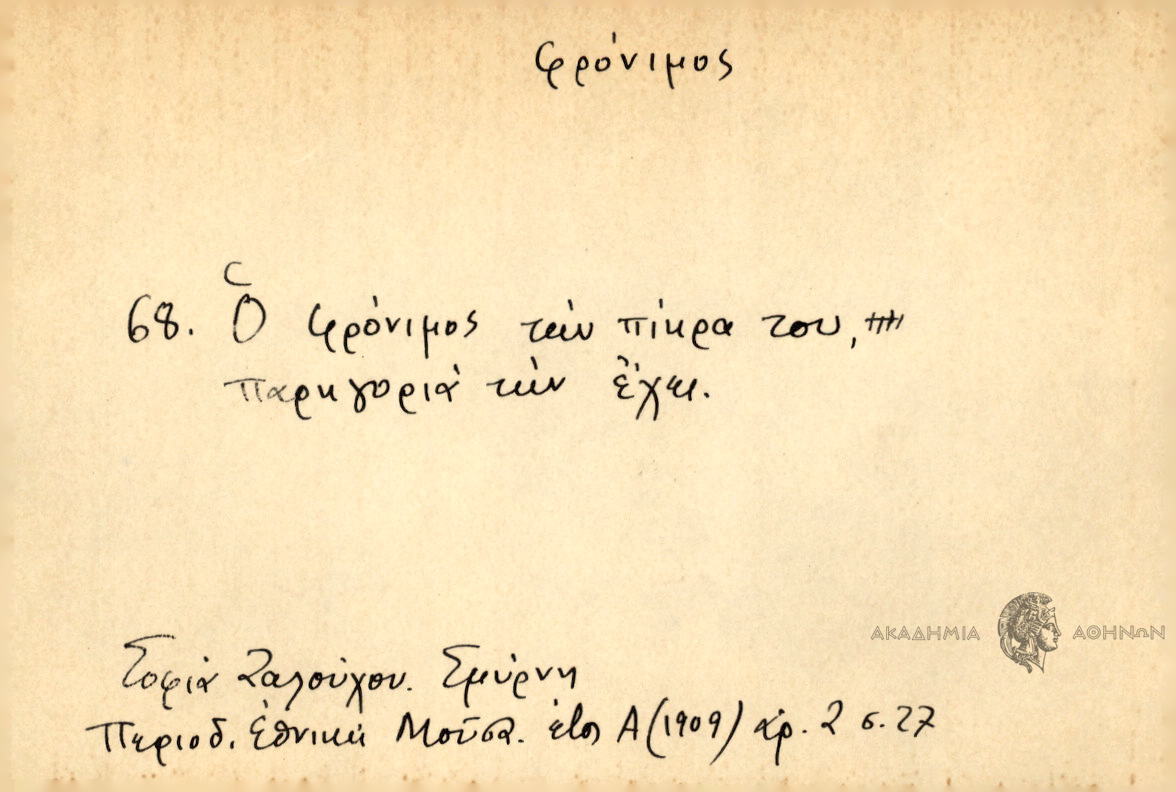 φρόνιμος
68. Ὁ φρόνιμος τὴν πίκρα του,
παρηγοριὰ τὴν ἔχει.
ΑΚΑΔΗΜΙΑ ΑΘΗΝΩΝ
Σοφία Σμύρνη
Περιοδ. Ἐθνικὴ Μοῦσα. ἔτος Α (1909) ἀρ. 2 σ. 27